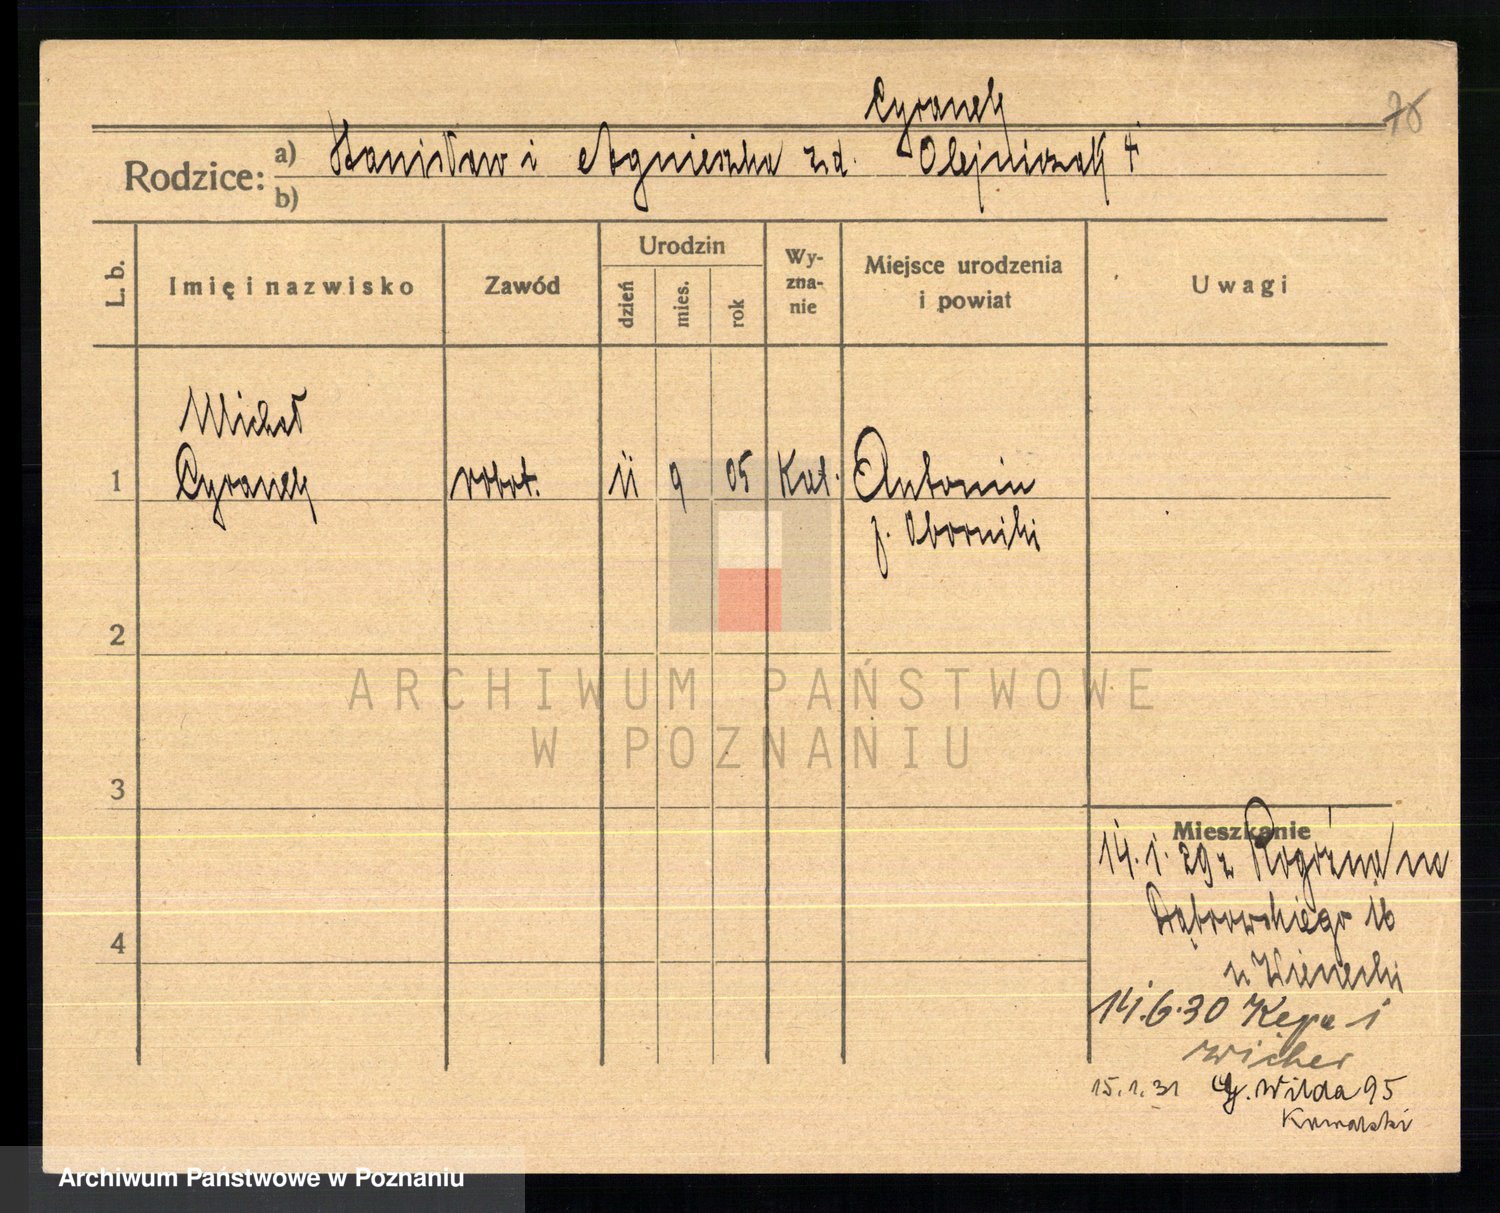 Cyranek
76
Rodzice: a) Stanisław i Agnieszka zd. Olejniczak
b)
L. b.
Imię i nazwisko
Zawód
Urodzin
dzień
mies.
rok
Wy-
zna-
nie
Miejsce urodzenia
i powiat
Uwagi
Michał
1 Cyranek robt. 11 9 05 Kat. Antonin
p. Oborniki
2
ARCHIWUM PAŃSTWOWE
W POZNANIU
3
Mieszkanie
14.1.29 z Rogoźna na
Dąbrowskiego 16
4
14.6.30 Kepa 1
Wicher
15.1.31 G. Wilda 95
Kowalski
Archiwum Państwowe w Poznaniu